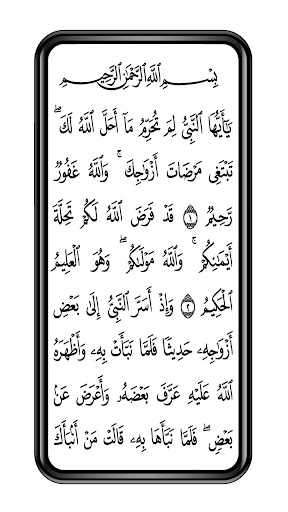 بِسْمِ اللَّهِ الرَّحْمَٰنِ الرَّحِيمِ
يَٰٓأَيُّهَا ٱلنَّبِىُّ لِمَ تُحَرِّمُ مَآ أَحَلَّ ٱللَّهُ لَكَ ۖ
تَبْتَغِى مَرْضَاتَ أَزْوَٰجِكَ ۚ وَٱللَّهُ غَفُورٌ
رَّحِيمٌ ١ قَدْ فَرَضَ ٱللَّهُ لَكُمْ تَحِلَّةَ
أَيْمَٰنِكُمْ ۚ وَٱللَّهُ مَوْلَىٰكُمْ ۖ وَهُوَ ٱلْعَلِيمُ
ٱلْحَكِيمُ ٢ وَإِذْ أَسَرَّ ٱلنَّبِىُّ إِلَىٰ بَعْضِ
أَزْوَٰجِهِۦ حَدِيثًا فَلَمَّا نَبَّأَتْ بِهِۦ وَأَظْهَرَهُ
ٱللَّهُ عَلَيْهِ عَرَّفَ بَعْضَهُۥ وَأَعْرَضَ عَنۢ
بَعْضٍ ۖ فَلَمَّا نَبَّأَهَا بِهِۦ قَالَتْ مَنْ أَنۢبَأَكَ